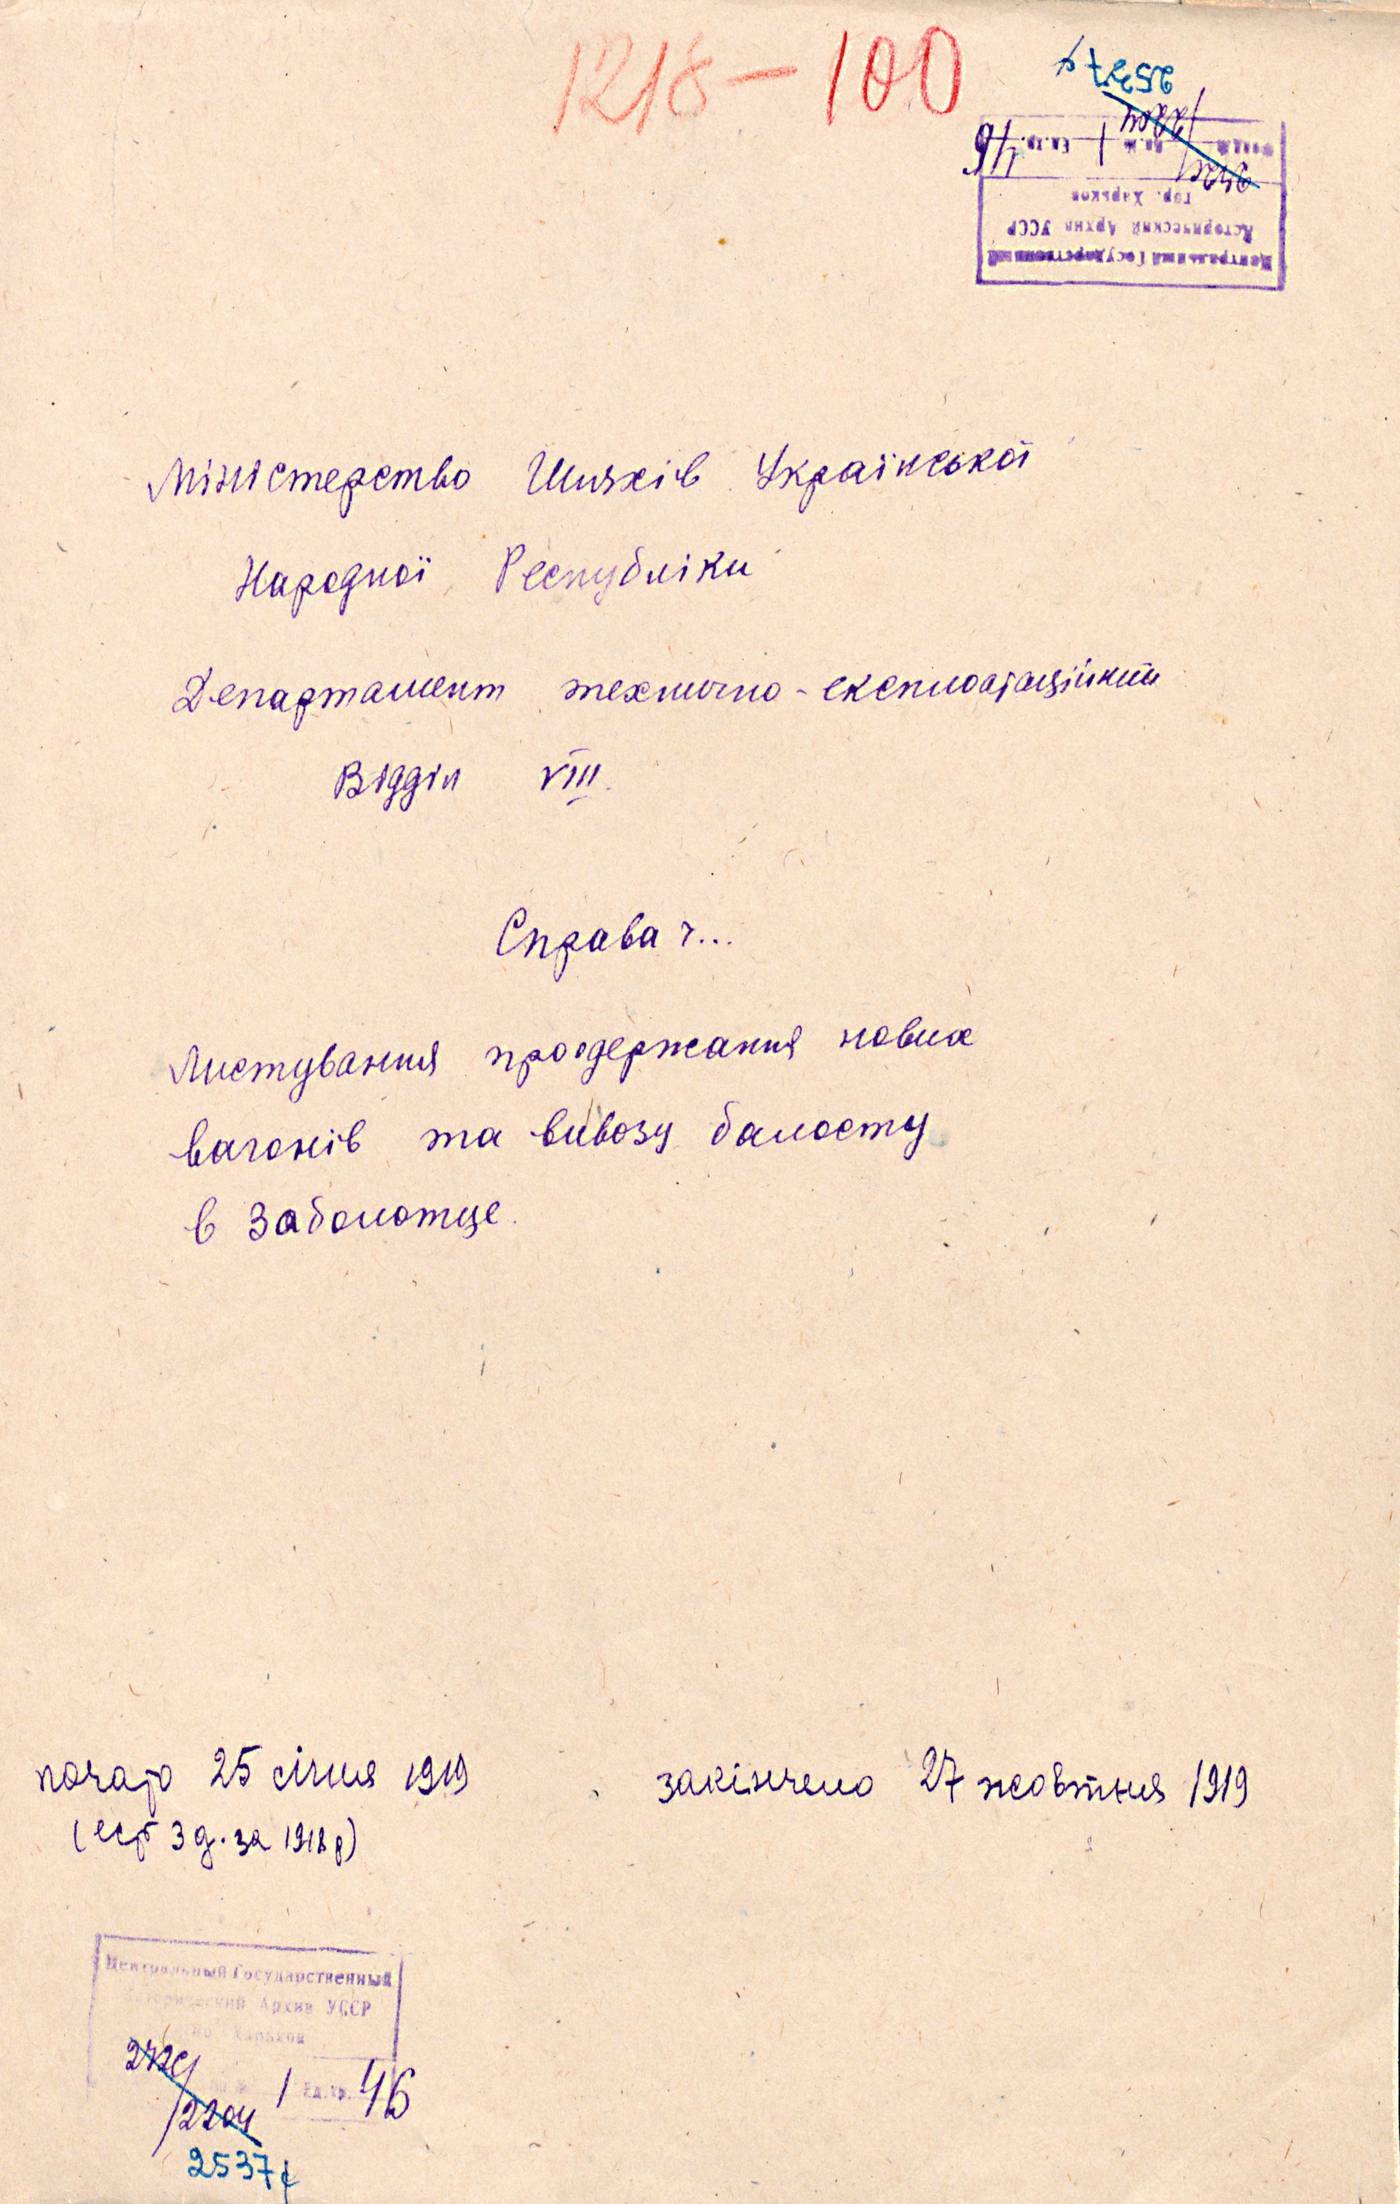 1218 - 100
2537ф
2204
Фонд № Оп. № 1 Ед. хр. 46
гор. Харьков
Исторический Архив УССР
Центральный Государственный
Міністерство Шляхів Української
Народної Республіки
Департамент технично-експлоатаційний
Відділ VIII.
Справа ч...
Листування про одержання нових
вагонів та вивозу баласту
в Заболотце.
почато 25 січня 1919
закінчено 27 жовтня 1919
(есть 3 д. за 1918 р)
Центральный Государственный
Исторический Архив УССР
Харьков
1 Ед. хр. 46
2204
2537ф